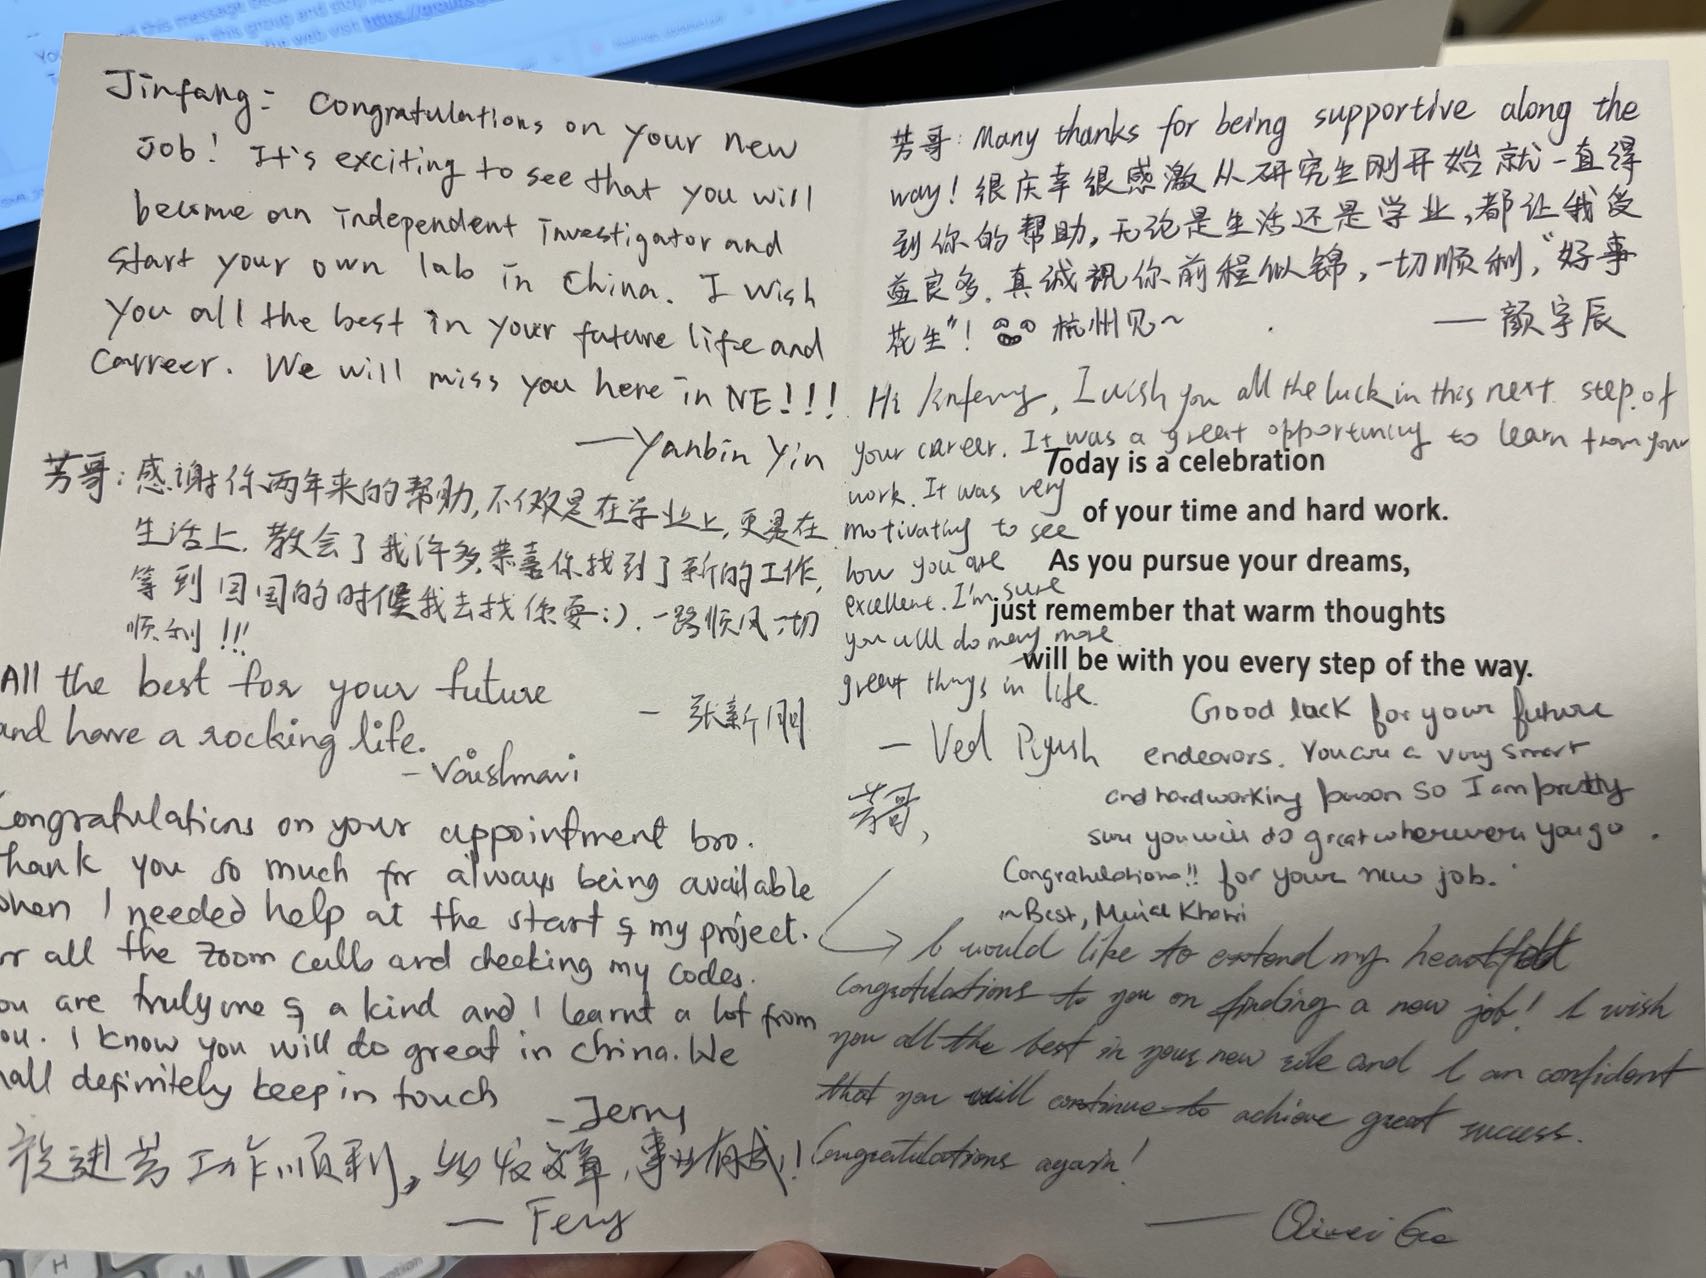 Jinfang: Congratulations on your new
Job! It's exciting to see that you will
become an independent investigator and
start your own lab in China. I wish
you all the best in your future life and
carreer. We will miss you here in NE!!!
—Yanbin Yin
芳哥:感谢你两年来的帮助,不仅是在学业上,更是在
生活上,教会了我许多,恭喜你找到了新的工作,
等到回国的时候我去找你耍:).一路顺风一切
顺利!!!
— 张新刚
All the best for your future
and have a rocking life.
- Vaishnavi
Congratulations on your appointment bro.
Thank you so much for always being available
when I needed help at the start of my project.
or all the zoom calls and checking my codes.
you are truly one of a kind and I learnt a lot from
you. I know you will do great in China. We
shall definitely keep in touch
- Jerry
祝进芳工作顺利,多发文章,事业有成!
— Feng
芳哥:Many thanks for being supportive along the
way!很庆幸很感激从研究生刚开始就一直得
到你的帮助,无论是生活还是学业,都让我受
益良多.真诚祝你前程似锦,一切顺利,“好事
花生”! 杭州见~
— 颜宇辰
Hi Jinfang, I wish you all the luck in this next step of
your career. It was a great opportunity to learn from your
work. It was very
motivating to see
how you are
excellent. I'm sure
you will do many more
great things in life.
— Ved Piyush
Today is a celebration
of your time and hard work.
As you pursue your dreams,
just remember that warm thoughts
will be with you every step of the way.
Good luck for your future
endeavors. You are a very smart
and hardworking person so I am pretty
sure you will do great wherever you go.
Congratulations!! for your new job.
~Best,
芳哥,
I would like to extend my heartfelt
congratulations to you on finding a new job! I wish
you all the best in your new role and I am confident
that you will continue to achieve great success.
Congratulations again!